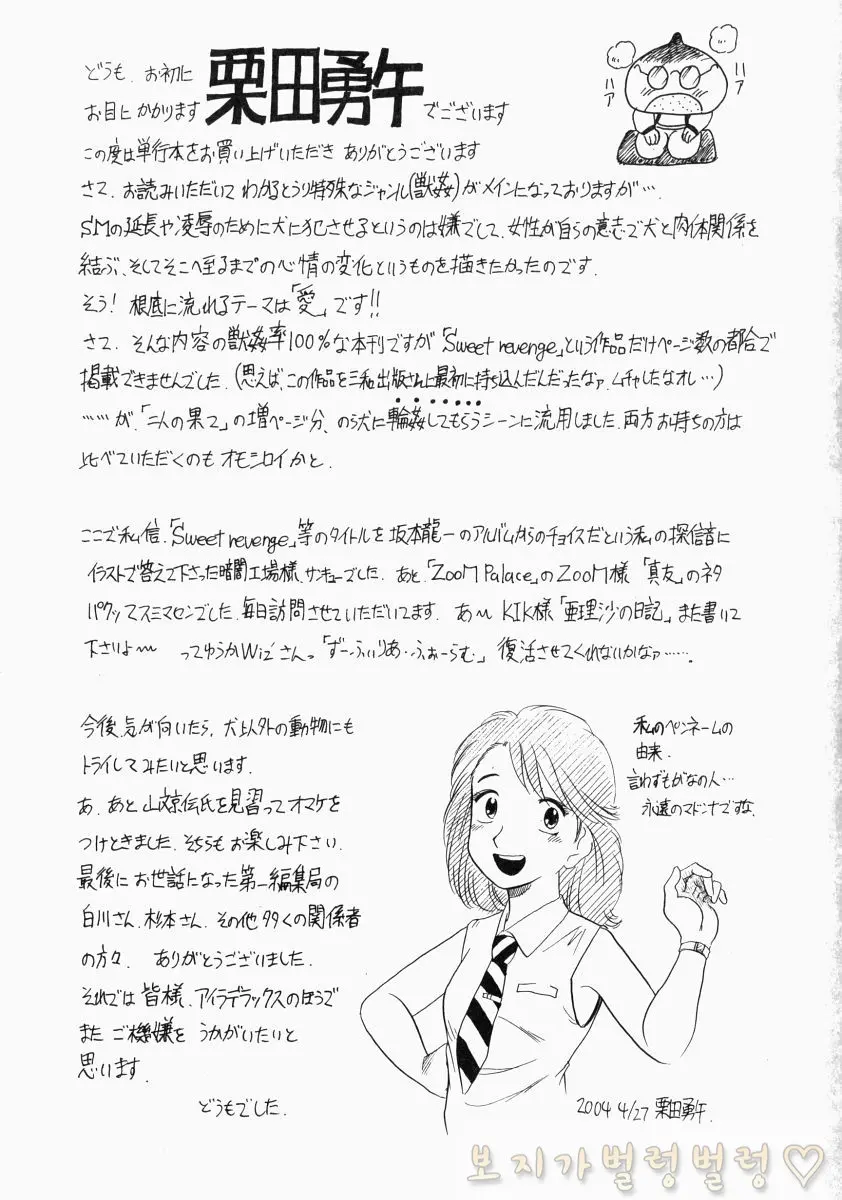 どうも、お初に
お目にかかります 栗田勇午 でございます
ハア
ハア
この度は単行本をお買い上げいただき ありがとうございます
さて、お読みいただいて わかるとうり特殊なジャンル(獣姦)がメインになっておりますが…、
SMの延長や凌辱のために犬に犯させるというのは嫌でして、女性が自らの意志で犬と肉体関係を
結ぶ、そしてそこへ至るまでの心情の変化というものを描きたかったのです.
そう! 根底に流れるテーマは「愛」です!!
さて、そんな内容の獣姦率100%な本刊ですが「Sweet revenge」という作品だけページ数の都合で
掲載できませんでした.(思えば、この作品を三和出版さんに最初に持ち込んだんだったなァ.ムチャしたなオレ…)
……が、「二人の果て」の増ページ分、のら犬に輪姦してもらうシーンに流用しました.両方お持ちの方は
比べていただくのも オモシロイかと.
ここで私信.「Sweet revenge」等のタイトルを坂本龍一のアルバムからのチョイスだという私の探信音に
イラストで答えて下さった暗闇工場様、サンキューでした. あと「ZooM Palace」のZooM様 「真友」のネタ
パクッてスミマセンでした.毎日訪問させていただいてます. あ〜 KIK様「亜理沙の日記」また書いて
下さいよ〜 ってゆうかWiz さんっ「ずーふぃりあ・ふぉーらむ」 復活させてくれないかなァ…….
今後、気が向いたら、犬以外の動物にも
トライしてみたいと思います.
あ、あと山文京伝氏を見習ってオマケを
つけときました.そちらも お楽しみ下さい.
最後に お世話になった第一編集局の
白川さん、杉本さん、その他 多くの関係者
の方々. ありがとうございました.
それでは 皆様、アイラデラックスのほうで
また ご機嫌を うかがいたいと
思います.
どうもでした.
私のペンネームの
由来.
言わずもがなの人…
永遠のマドンナですな.
2004 4/27 栗田勇午.
보지가벌렁벌렁♡